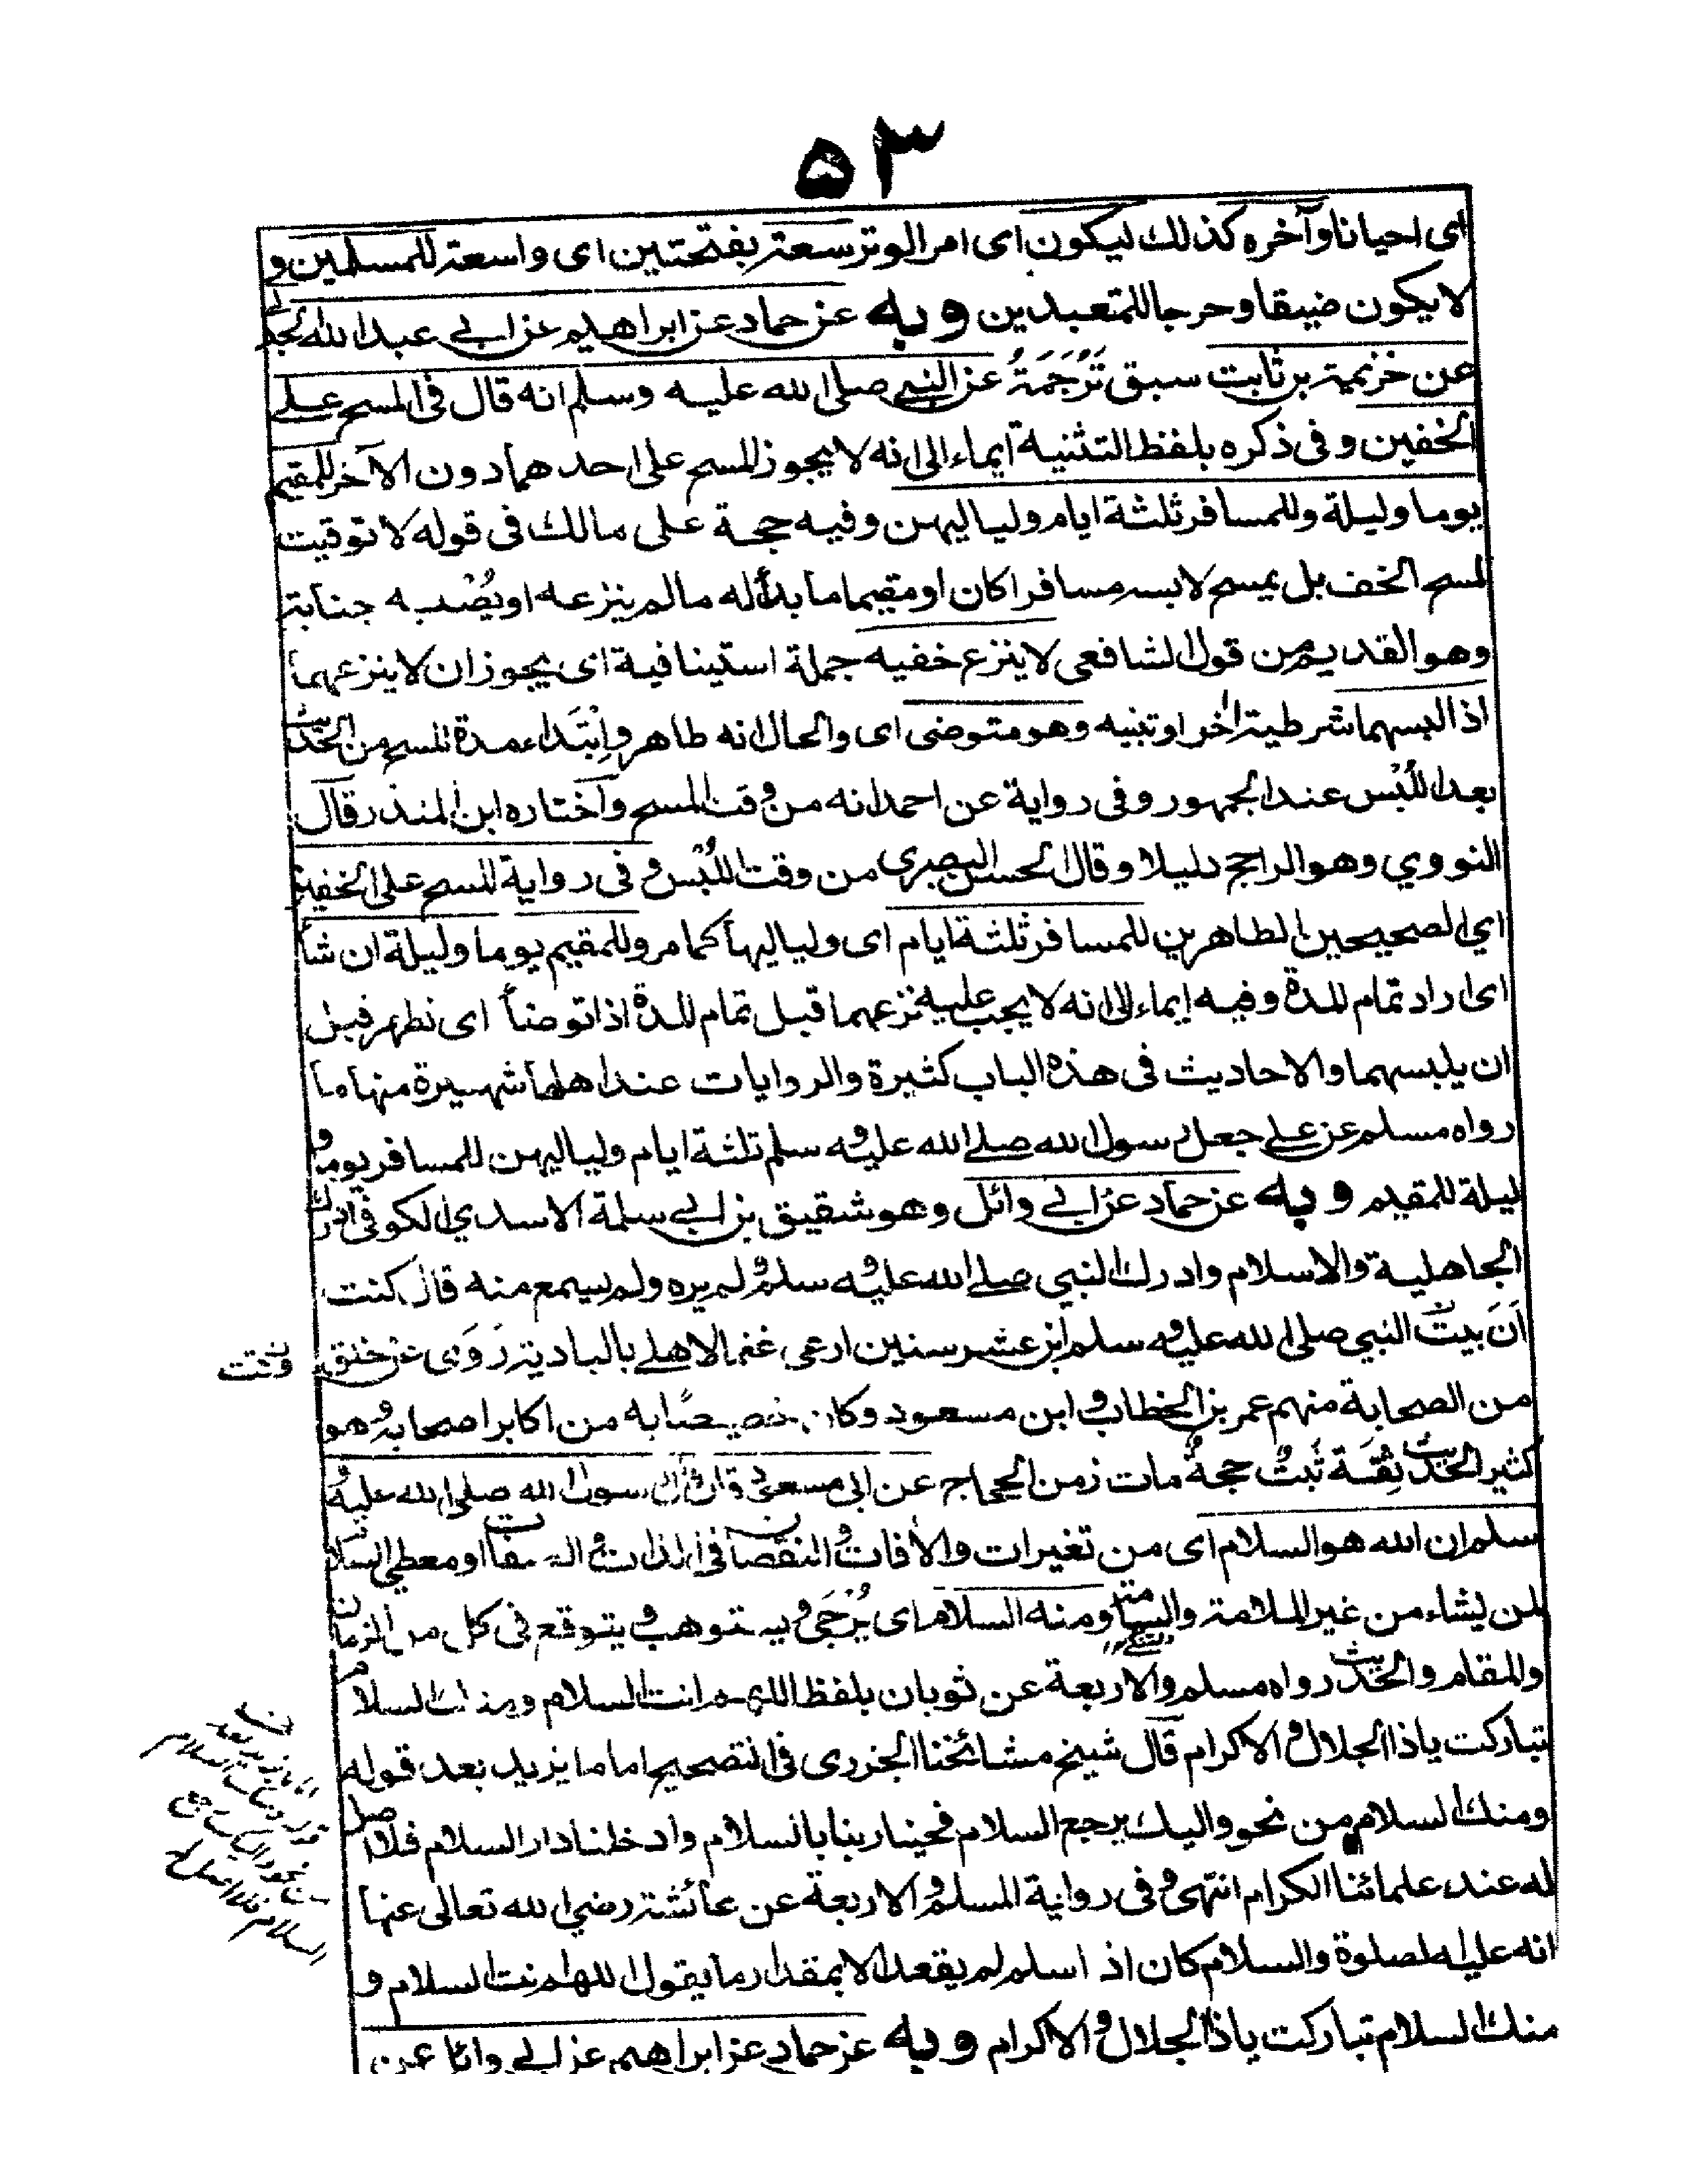 ٥٣
اى احيانا وآخره كذلك ليكون اى امر الوتر سعة بفتحتين اى واسعة للمسلمين و
لا يكون ضيقا وحرجا للمتعبدين وبه عن حماد عن ابراهيم عن ابي عبد الله الجدلي
عن خزيمة بن ثابت سبق تَرْجَمَتُهُ عن النبي صلى الله عليه وسلم انه قال فى المسح على
الخفين وفى ذكره بلفظ التثنية ايماء الى انه لا يجوز المسح على احدهما دون الآخر للمقيم
يوما وليلة وللمسافر ثلثة ايام ولياليهن وفيه حجة على مالك فى قوله لا توقيت
لمسح الخف بل يمسح لابسه مسافرا كان او مقيما ما بدأ له ما لم ينزعه او يُصْبه جنابة
وهو القديم من قول الشافعى لا ينزع خفيه جملة استينافية اى يجوز ان لا ينزعهما
اذا لبسهما شرطية اخر او تنبيه وهو متوضى اى والحال انه طاهر وابْتَداء مدة المسح من الحدث
بعد اللُبْس عند الجمهور وفى رواية عن احمد انه من وقت المسح وآختاره ابن المنذر قآل
النووي وهو الراجح دليلا وقال الحسن البصرى من وقت اللُبْس وفى رواية المسح على الخفين
اي الصحيحين الطاهرين للمسافر ثلثة ايام اى ولياليها كما مر وللمقيم يوما وليلة ان شأ
اى اراد تمام المدة وفيه ايماء الى انه لا يجب عليه نزعهما قبل تمام المدة اذا توضأ اى تطهر قبل
ان يلبسهما والاحاديث فى هذه الباب كثيرة والروايات عند اهلها شهيرة منها ما
رواه مسلم عن علي جعل رسول الله صلى الله عليه وسلم ثلثة ايام ولياليهن للمسافر يوما و
ليلة للمقيم وبه عن حماد عن ابي وائل وهو شقيق بن ابي سلمة الاسدي الكوفى ادرك
الجاهلية والاسلام وادرك النبي صلى الله عليه وسلم ولم يره ولم يسمع منه قال كنت
اَنَ بيت النبي صلى الله عليه وسلم ابن عشر سنين ارعى غنما لاهلي بالبادية رَوَى عن خلق
وقت
من الصحابة منهم عمر بن الخطاب وابن مسعود وكان خصيصًا به من اكابر اصحابه وهو
كثير الحديث ثِقَة ثَبتٌ حجةٌ مات زمن الحجاج عن ابى مسعود قال رسول الله صلى الله عليه و
سلم ان الله هو السلام اى من تغيرات والآفات والنقصان فى الذات والصفات او معطي السلامة
لمن يشاء من غير الملامة والسامة ومنه السلام اى يُرْجَى ويستوهب ويتوقع فى كل من الزمان
والمقام والحديث رواه مسلم والاربعة عن ثوبان بلفظ اللهم انت السلام ومنك السلام
تباركت يا ذا الجلال والاكرام قآل شيخ مشائخنا الجزرى فى التصحيح اما ما يزيد بعد قوله
ومنك السلام من نحو واليك يرجع السلام فحينا ربنا بالسلام وادخلنا دار السلام فلا اصل
اما يزيد بعد
السلام
له عند علمائنا الكرام انتهى وفى رواية المسلم والاربعة عن عائشة رضي الله تعالى عنها
انه عليه الصلوة والسلام كان اذا سلم لم يقعد الا بمقدار ما يقول اللهم انت السلام و
منك السلام تباركت يا ذا الجلال والاكرام وبه عن حماد عن ابراهيم عن ابي وائل عن